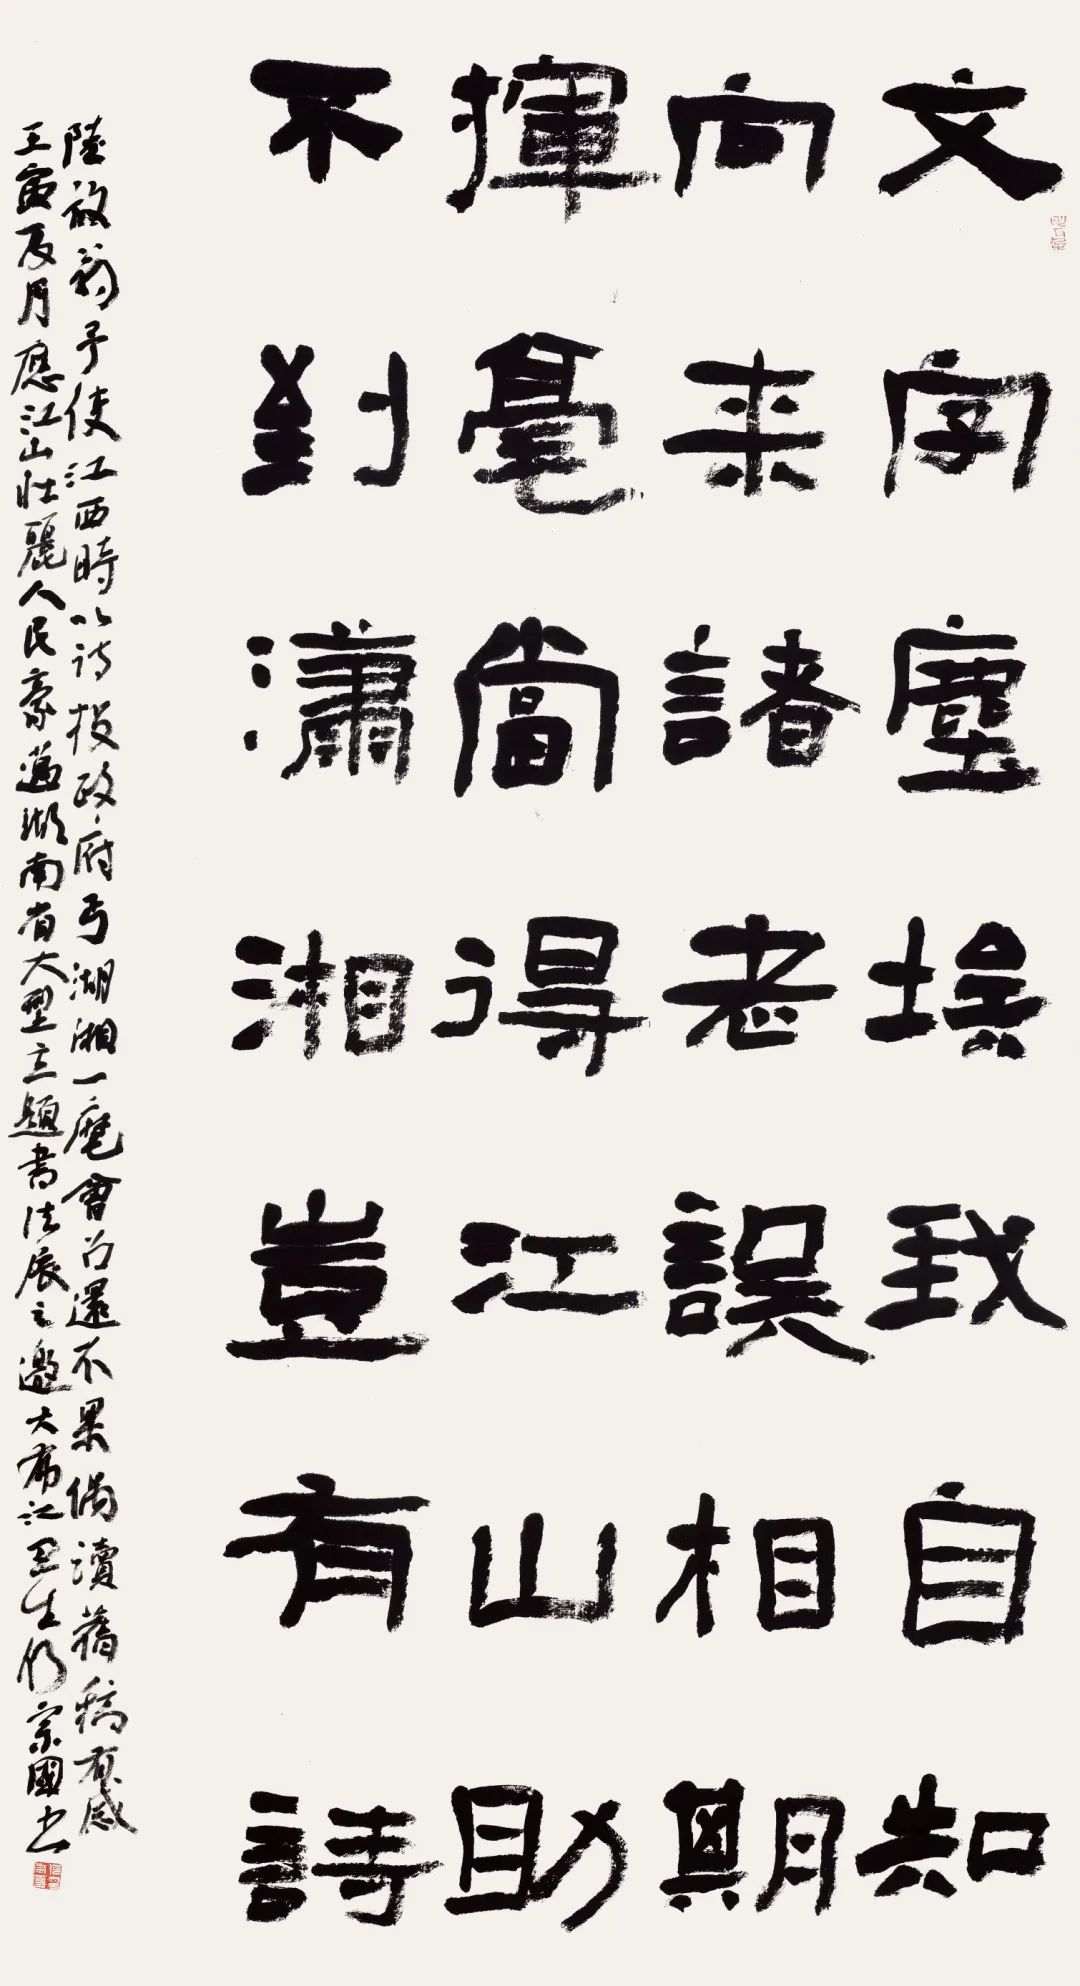 文字塵埃我自知
向来諸老誤相期
揮毫當得江山助
不到瀟湘豈有詩
陸放翁予使江西時以詩投政府丐湖湘一麾會召還不果偶讀舊稿有感
壬寅辰月應江山壯麗人民豪邁湖南省大型主題書法展之邀大布江丑生宗國書